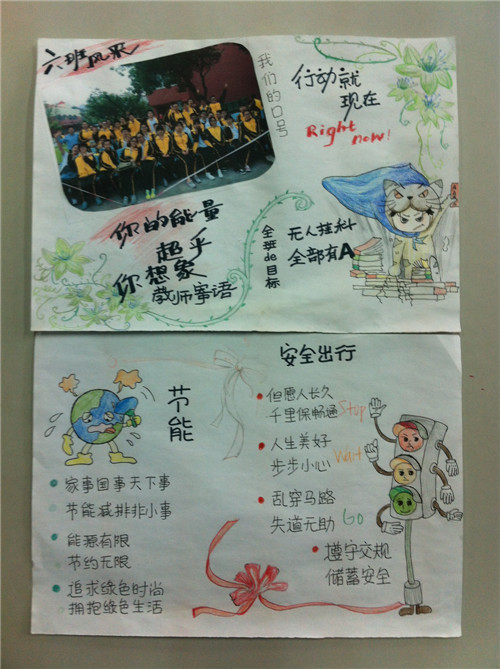 六班风采
我们的口号
行动就
现在
Right
now!
你的能量
超乎
你想象
教师寄语
全班de目标
无人挂科
全部有A
安全出行
节能
但愿人长久
千里保畅通
Stop
人生美好
步步小心
Wait
乱穿马路
失道无助
GO
遵守交规
储蓄安全
家事国事天下事
节能减排非小事
能源有限
节约无限
追求绿色时尚
拥抱绿色生活